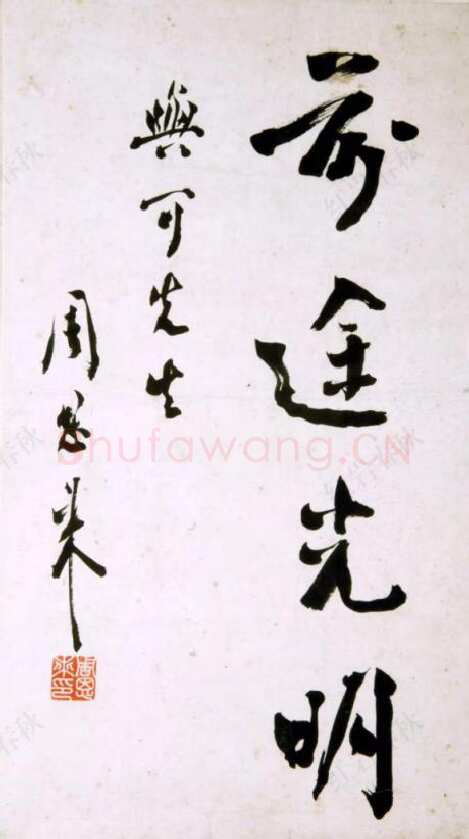 前途光明
與可先生
周恩来
周恩來印
Shufawang.CN